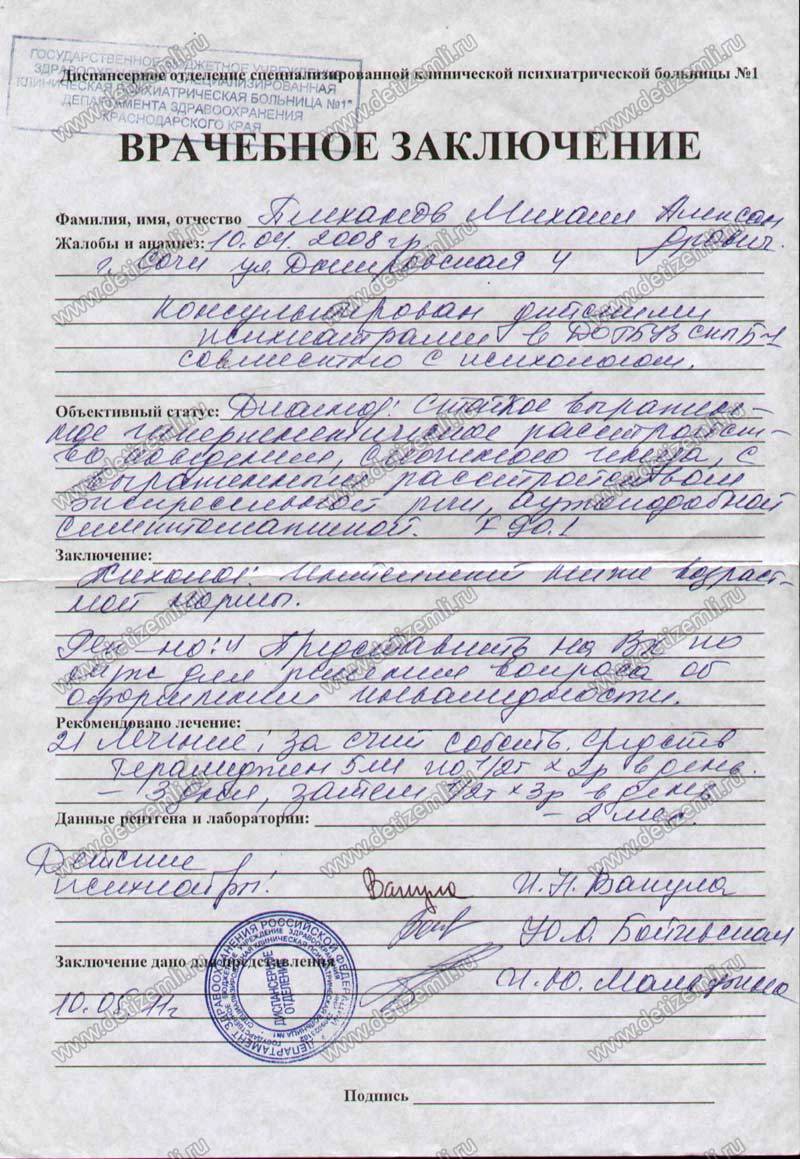 ГОСУДАРСТВЕННОЕ БЮДЖЕТНОЕ УЧРЕЖДЕНИЕ
ЗДРАВООХРАНЕНИЯ "СПЕЦИАЛИЗИРОВАННАЯ
КЛИНИЧЕСКАЯ ПСИХИАТРИЧЕСКАЯ БОЛЬНИЦА №1"
ДЕПАРТАМЕНТА ЗДРАВООХРАНЕНИЯ
КРАСНОДАРСКОГО КРАЯ
Диспансерное отделение специализированной клинической психиатрической больницы №1
ВРАЧЕБНОЕ ЗАКЛЮЧЕНИЕ
Фамилия, имя, отчество Плиханов Михаил Алексан
дрович.
Жалобы и анамнез: 10.04.2008 гр
г. Сочи ул. 4
Консультирован детскими
психиатрами в СКПБ-1
совместно с психологом.
Объективный статус: Диагноз: Стойкое выражен-
ное гиперкинетическое расстройст-
во поведения, сложного генеза, с
выраженным расстройством
экспрессивной речи, аутоподобной
симптоматикой. F 90.1
Заключение:
Психолог: Интеллект ниже возраст-
ной нормы.
Рек-но: 1) Представить на ВК по
м/ж для решения вопроса об
оформлении инвалидности.
Рекомендовано лечение:
2) Лечение: за счет собств. средств
5мг по 1/2т х 2р в день
- 3 дня, затем 1/2т х 3р в день
- 2 мес.
Данные рентгена и лаборатории:
Детские
психиатры:
Вакула И.Н. Вакула
Ю.А.
И.Ю.
Заключение дано для представления
10.05.11г
ДИСПАНСЕРНОЕ
ОТДЕЛЕНИЕ
Подпись
www.detizemli.ru